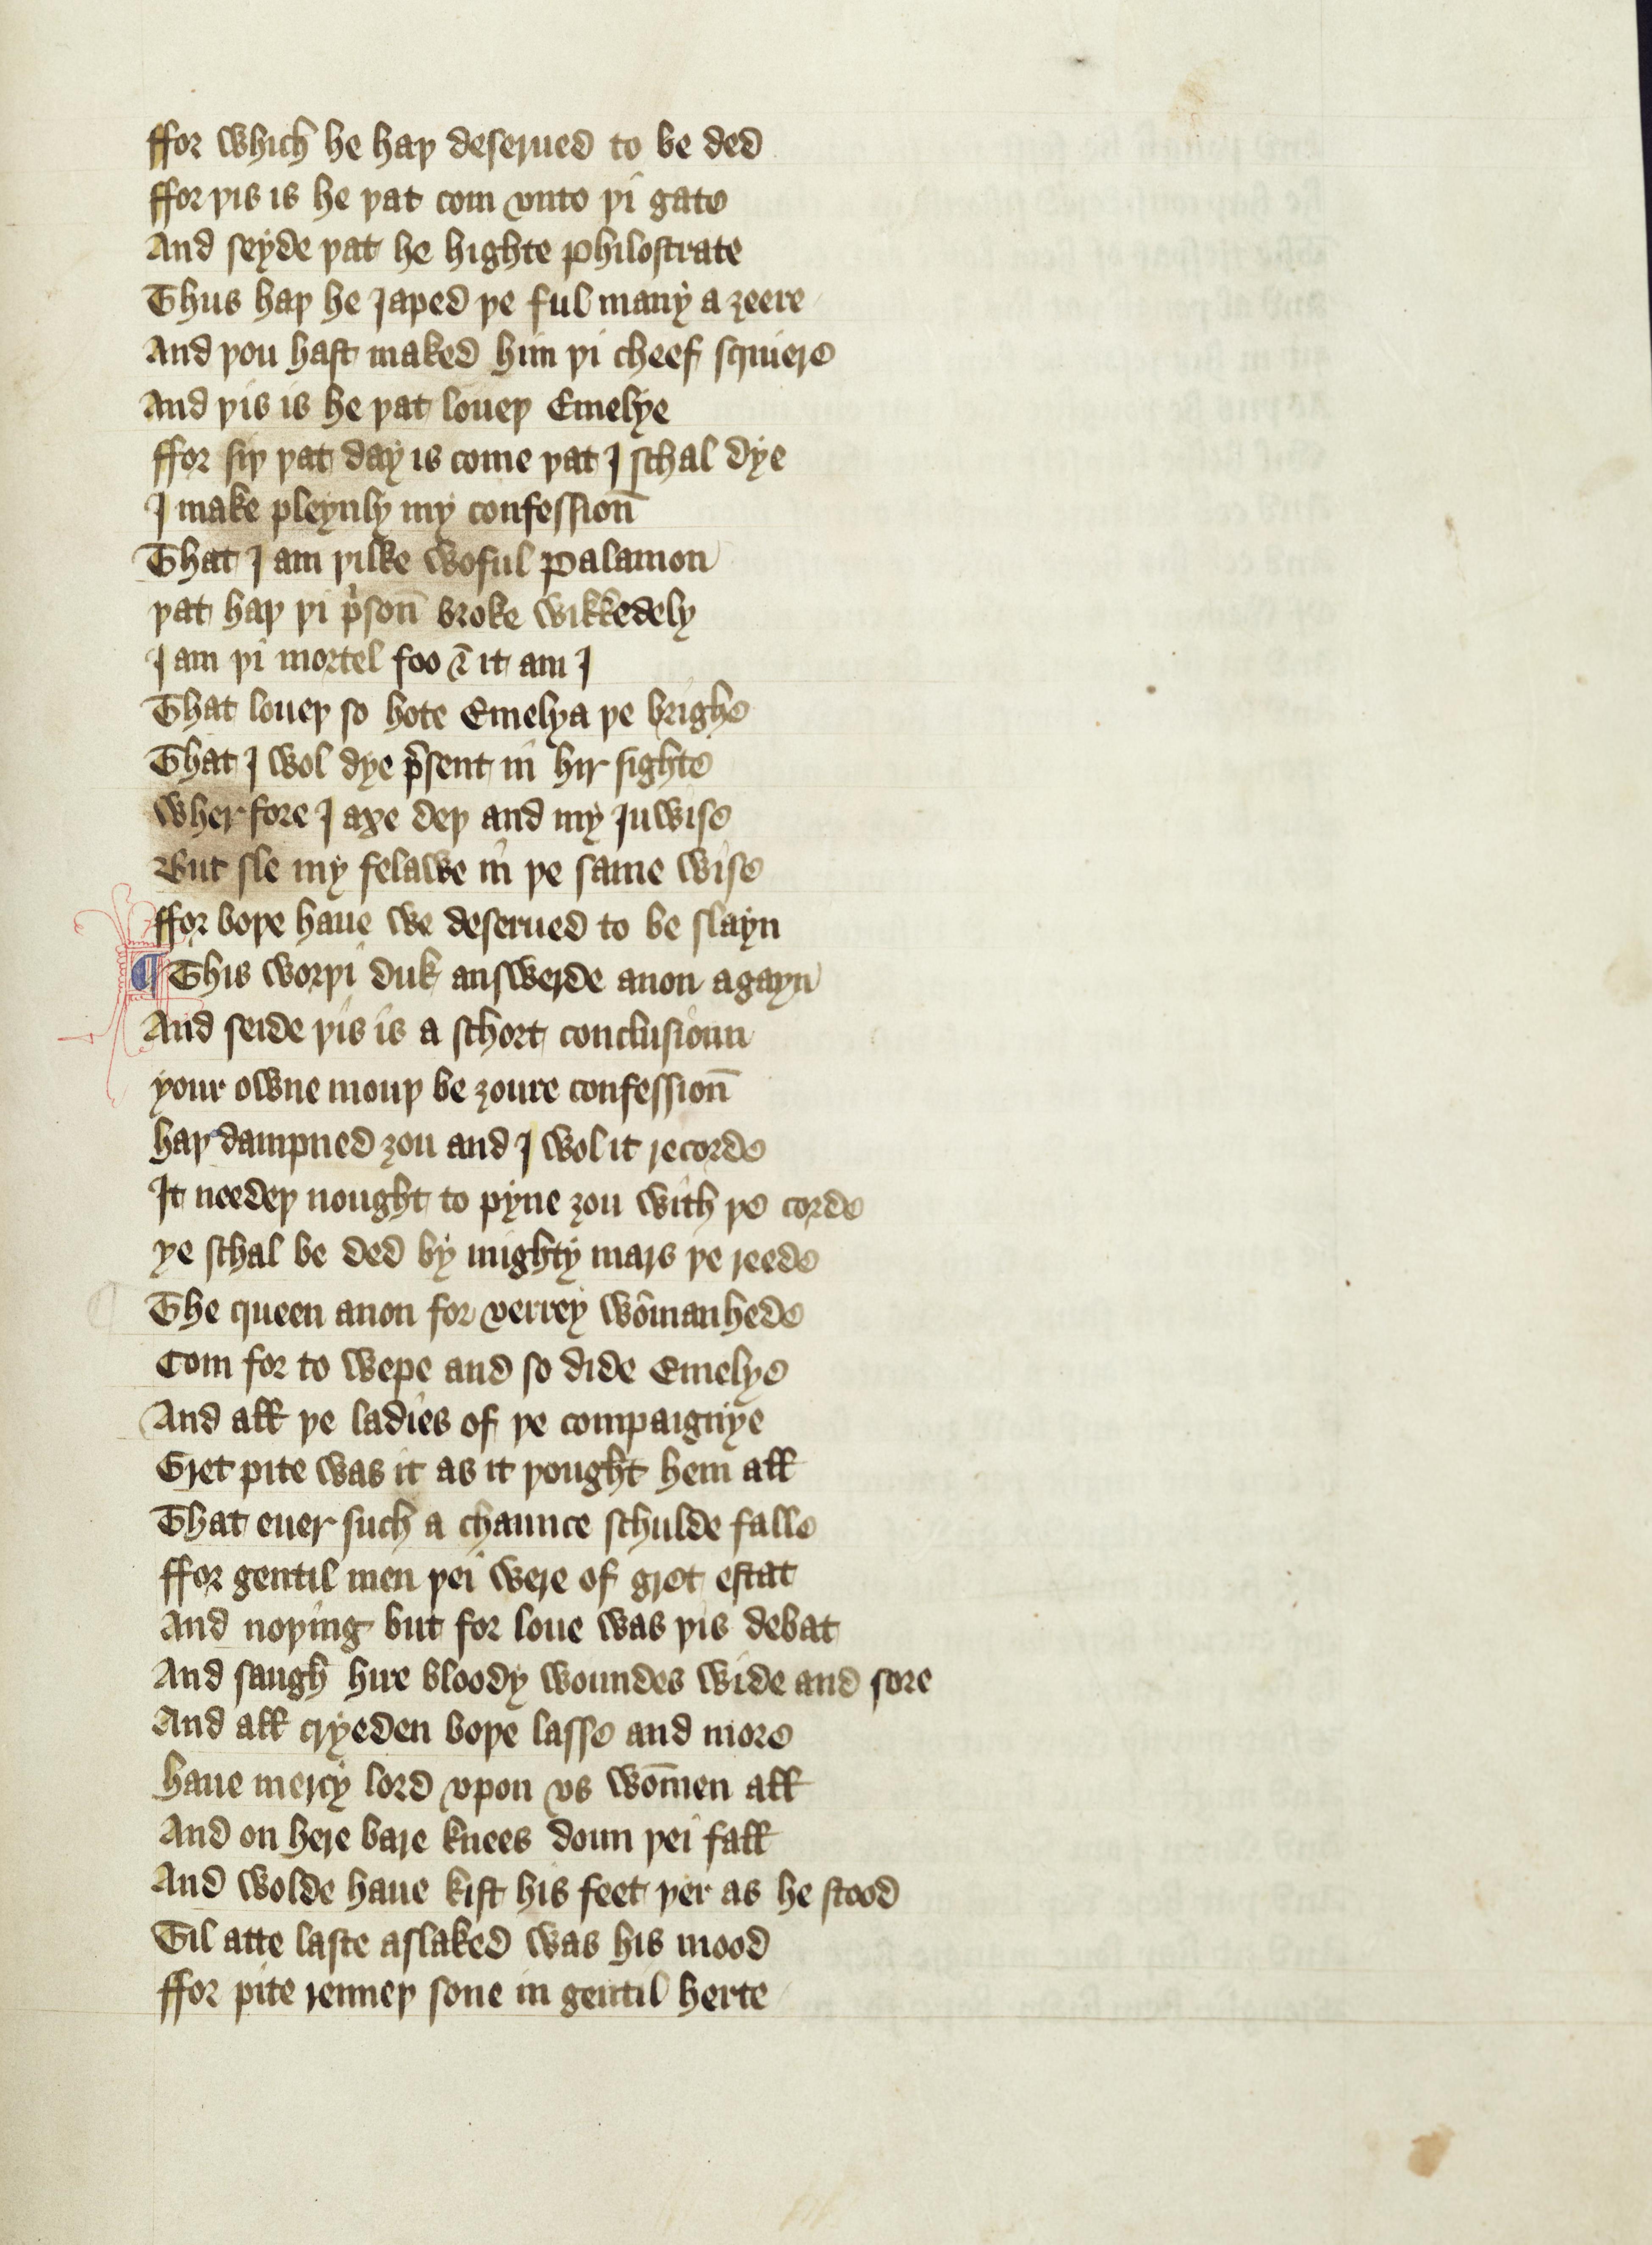 ffor which he haþ deserued to be ded
ffor þis is he þat com vnto þi gate
And seyde þat he highte philostrate
Thus haþ he Japed þe ful many a ȝeere
And þou hast maked him þi cheef squiere
And þis is he þat loueþ Emelye
ffor siþ þat day is come þat I schal dye
I make pleynly my confession̄
That I am þilke woful Palamon
þat haþ þi pͥson̄ broke wikkedely
I am þi mortel foo ⁊ it am I
That loueþ so hote Emelya þe brighe
That I wol dye p̄sent in hir sighte
wherfore I axe deþ and my Juwise
But sle my felawe in þe same wise
ffor boþe haue we deserued to be slayn
¶ This worþi duk answerde anon agayn
And seide þis is a schort conclusioun
your owne mouþ be ȝoure confession̄
haþ dampned ȝou and I wol it recorde
It needeþ nought to pyne ȝou with þe corde
ye schal be ded by mighty mars þe reede
The queen anon for verrey wōmanhede
Com for to wepe and so dide Emelye
And aƚƚ þe ladies of þe compaignye
Gret pite was it as it þought hem aƚƚ
That euer such a chaunce schulde falle
ffor gentil men þei were of gret estat
And noþing but for loue was þis debat
And saugh hire bloody woundes wide and sore
And aƚƚ cryeden boþe lasse and more
haue mercy lord vpon vs wom̄en aƚƚ
And on here bare knees doun þei faƚƚ
And wolde haue kist his feet þer as he stood
Til atte laste aslaked was his mood
ffor pite renneþ sone in gentil herte